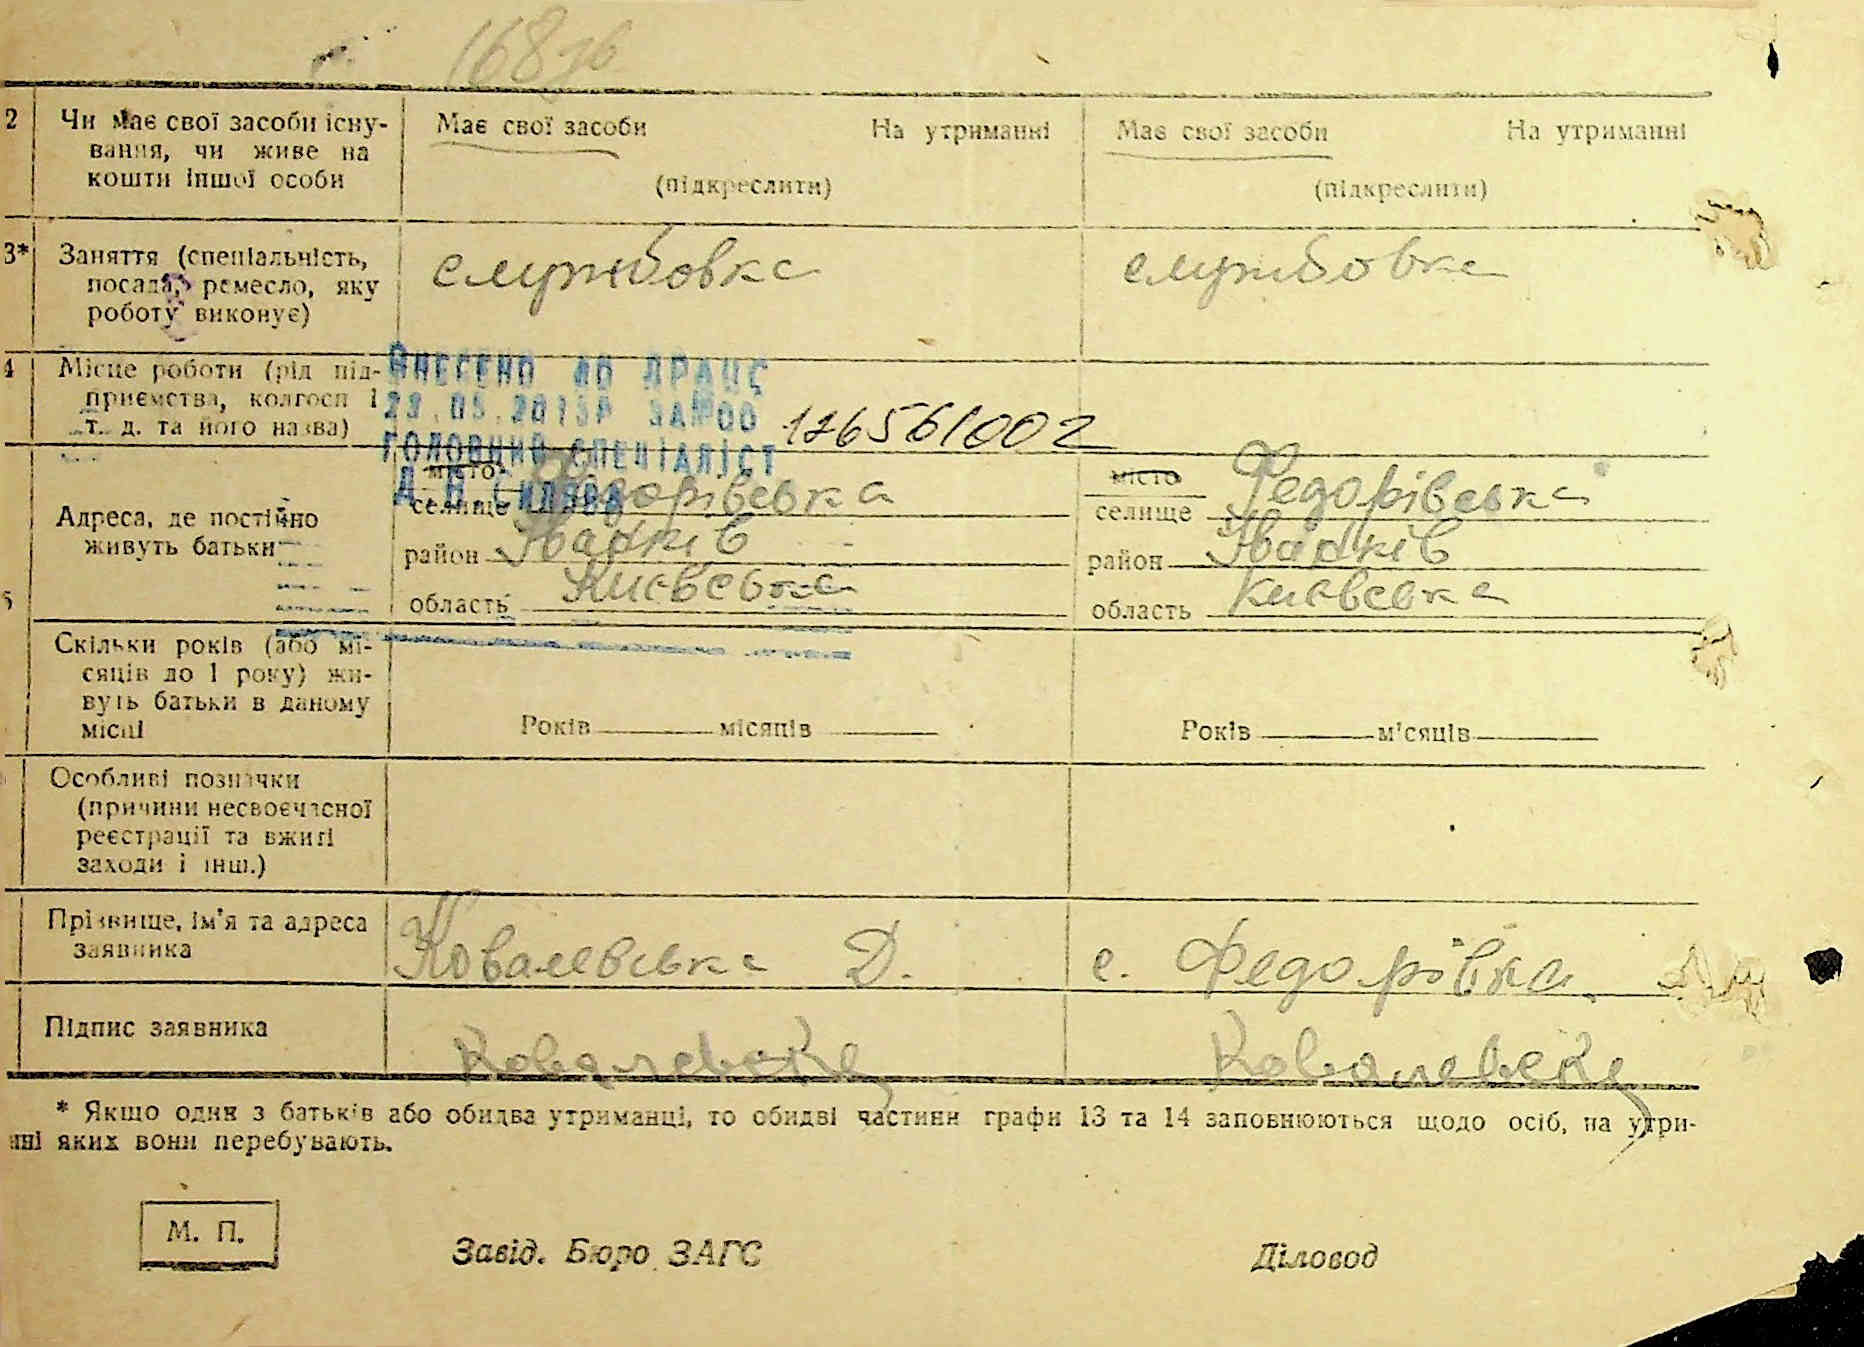 168 зв
2 Чи має свої засоби існу-
вання, чи живе на
кошти іншої особи
Має свої засоби На утриманні
(підкреслити)
Має свої засоби На утриманні
(підкреслити)
3* Заняття (спеціальність,
посада, ремесло, яку
роботу виконує)
службовка
службовка
4 Місце роботи (рід під-
приємства, колгосп і
т. д. та його назва)
ВНЕСЕНО ДО ДРАЦС
23.05.2013Р ЗА №00 126561002
ГОЛОВНИЙ СПЕЦІАЛІСТ
5 Адреса, де постійно
живуть батьки
місто
селище Федорівська
район Іванків
область Києвська
місто
селище Федорівська
район Іванків
область Києвська
Скільки років (або мі-
сяців до 1 року) жи-
вуть батьки в даному
місці
Років місяців
Років місяців
Особливі позначки
(причини несвоєчасної
реєстрації та вжиті
заходи і інш.)
Прізвище, ім'я та адреса
заявника
Ковалевська Д. с. Федорівка
Підпис заявника
Ковалевска Ковалевска
* Якщо один з батьків або обидва утриманці, то обидві частини графи 13 та 14 заповнюються щодо осіб, на утри-
нні яких вони перебувають.
М. П.
Завід. Бюро ЗАГС
Діловод